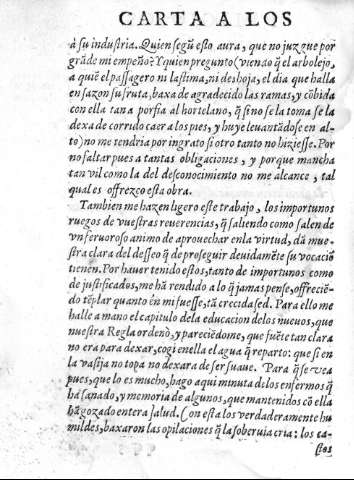 CARTA A LOS
à su industria. Quien segũ esto aura, que no juzgue por
grãde mi empeño? Y quien pregunto (viendo q̃ el arbolejo,
a quiẽ el passagero ni lastima, ni deshoja, el dia que halla
en sazon su fruta, baxa de agradecido las ramas, y cõbida
con ella tan a porfia al hortelano, q̃ si no se la toma se la
dexa de corrudo caer a los pies, y huye leuantãdose en al-
to) no me tendria por ingrato si otro tanto no hiziesse. Por
no faltar pues a tantas obligaciones, y porque mancha
tan vil como la del desconocimiento no me alcance, tal
qual es offrezco esta obra.
Tambien me hazen ligero este trabajo, los importunos
ruegos de vuestras reuerencias, q̃ saliendo como salen de
vn feruoroso animo de aprouechar en la virtud, dã mue-
stra clara del desseo q̃ de proseguir deuidamẽte su vocaciõ
tienen. Por hauer tenido estos, tanto de importunos como
de justificados, me hã rendido a lo q̃ jamas pense, offreciẽ-
do tẽplar quanto ẽn mi fuesse, tã crecida sed. Para ello me
halle a mano el capitulo de la educacion de los nueuos, que
nuestra Regla ordenò, y pareciẽdome, que fuẽte tan clara
no era para dexar, cogi en ella el agua q̃ reparto: que si en
la vasija no topa no dexara de ser suaue. Para q̃ se vea
pues, que lo es mucho, hago aqui minuta de los enfermos q̃
hã sanado, y memoria de algunos, que mantenidos cõ ella
hã gozado entera salud. Con esta los verdaderamente hu
mildes, baxaron las opilaciones q̃ la soberuia cria: los ca-
stos